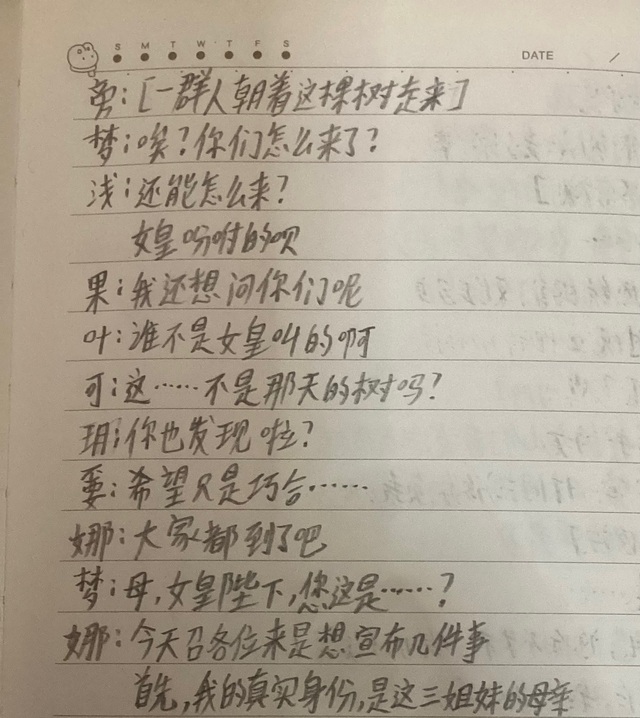 S M T W T F S
DATE /
旁:[一群人朝着这棵树走来]
梦:唉?你们怎么来了?
浅:还能怎么来?
女皇吩咐的呗
果:我还想问你们呢
叶:谁不是女皇叫的啊
可:这……不是那天的树吗?
玥:你也发现啦?
希望只是巧合……
娜:大家都到了吧
梦:母,女皇陛下,您这是……?
娜:今天召各位来是想宣布几件事
首先,我的真实身份,是这三姐妹的母亲